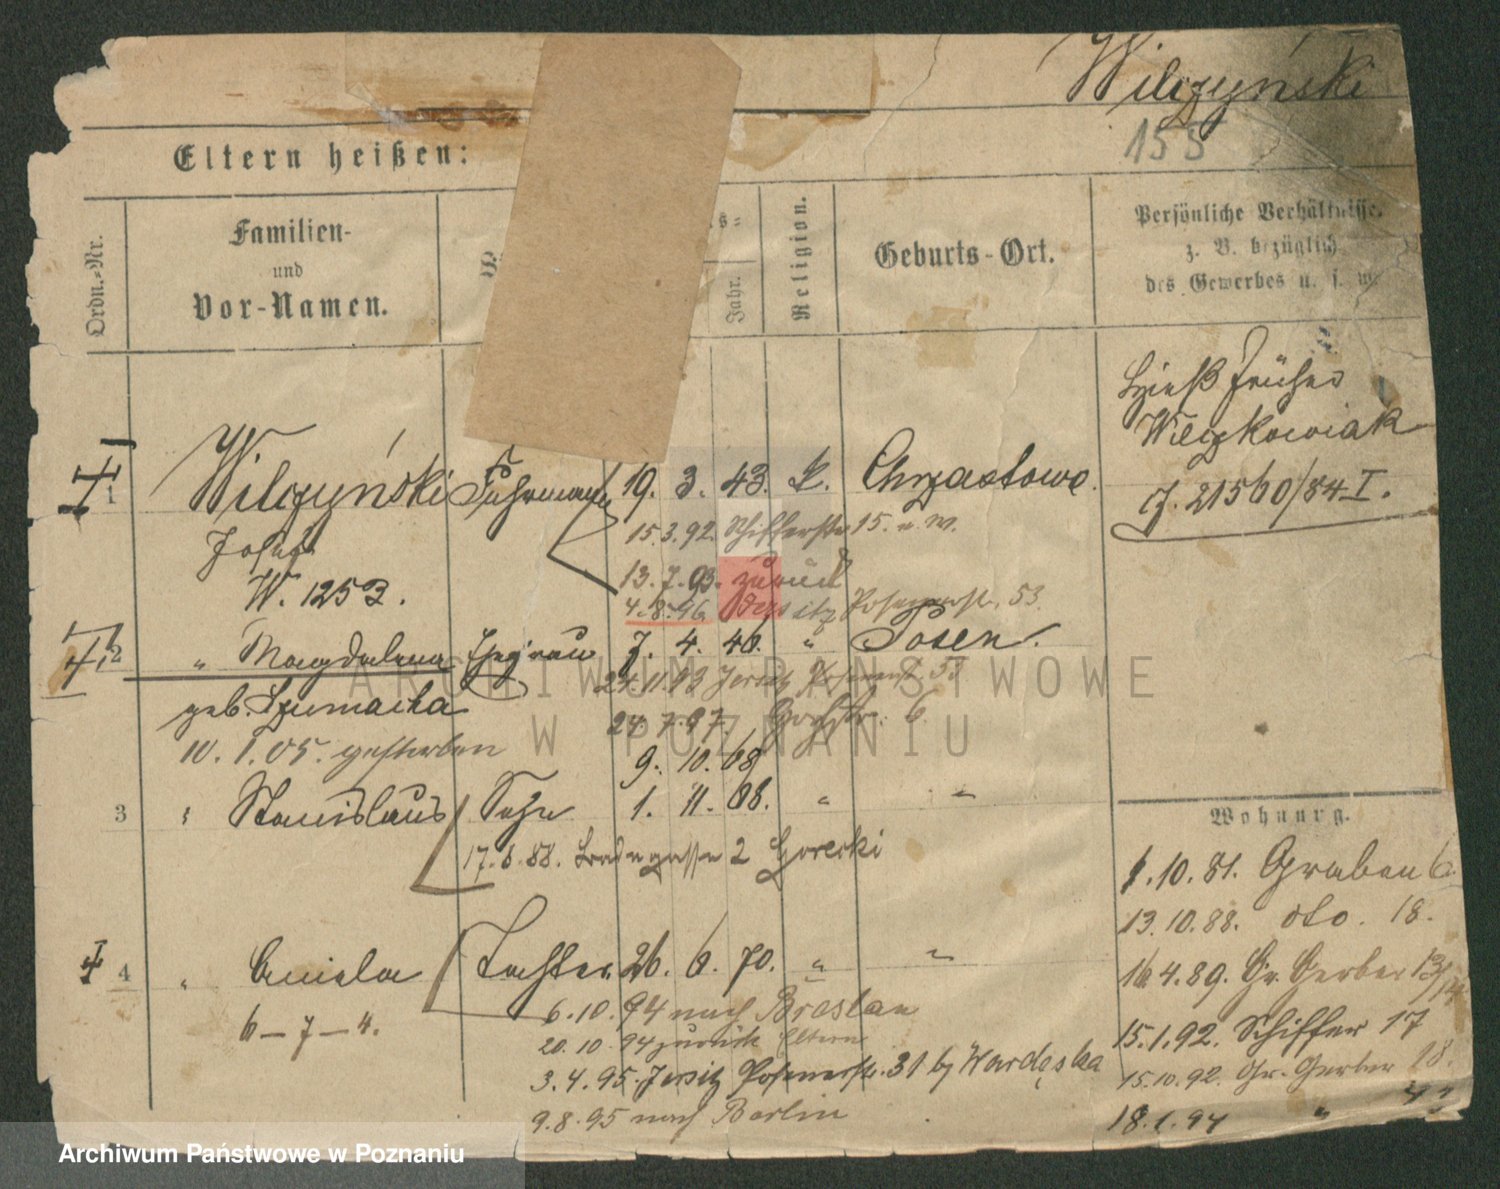 Wilczyński
155
Eltern heißen:
Ordn.-Nr.
Familien-
und
Vor-Namen.
Jahr.
Religion.
Geburts-Ort.
Persönliche Verhältnisse.
z. B. bezüglich
des Gewerbes u. s. w.
Hieß früher
Wilczkowiak
J. 21560/84 I.
1 Wilczyński Fuhrmann 19. 3. 43. k. Chrzastowo.
15.3.92. Schifferstr 15. u. W.
Josef
13.7.93. zurück
W. 1253.
4.8.96. Jersitz Posenerstr. 53.
2 " Magdalena Ehefrau 7. 4. 46. " Posen.
24.11.93 Jersitz Posenerst 53
geb. Szumacka
24.7.97. 6.
10.1.05. gestorben
9. 10. 68
3 Stanislaus Sohn 1. 11. 68. " "
17.6.88. 2 Gorecki
4 " Aniela Tochter 26. 6. 70. " "
6.10.94 nach Breslau
6-7-4.
20.10.94 zurück Eltern
3.4.95. Jersitz Posenerstr. 31 b/ Wardęska
9.8.95 nach Berlin
Wohnung.
1.10.81. Graben 6.
13.10.88. dto. 18.
16.4.89. Gr. Gerber 13/14
15.1.92. Schiffer 17
15.10.92. Gr. Gerber 18.
18.1.94 "
ARCHIWUM PAŃSTWOWE
W POZNANIU
Archiwum Państwowe w Poznaniu